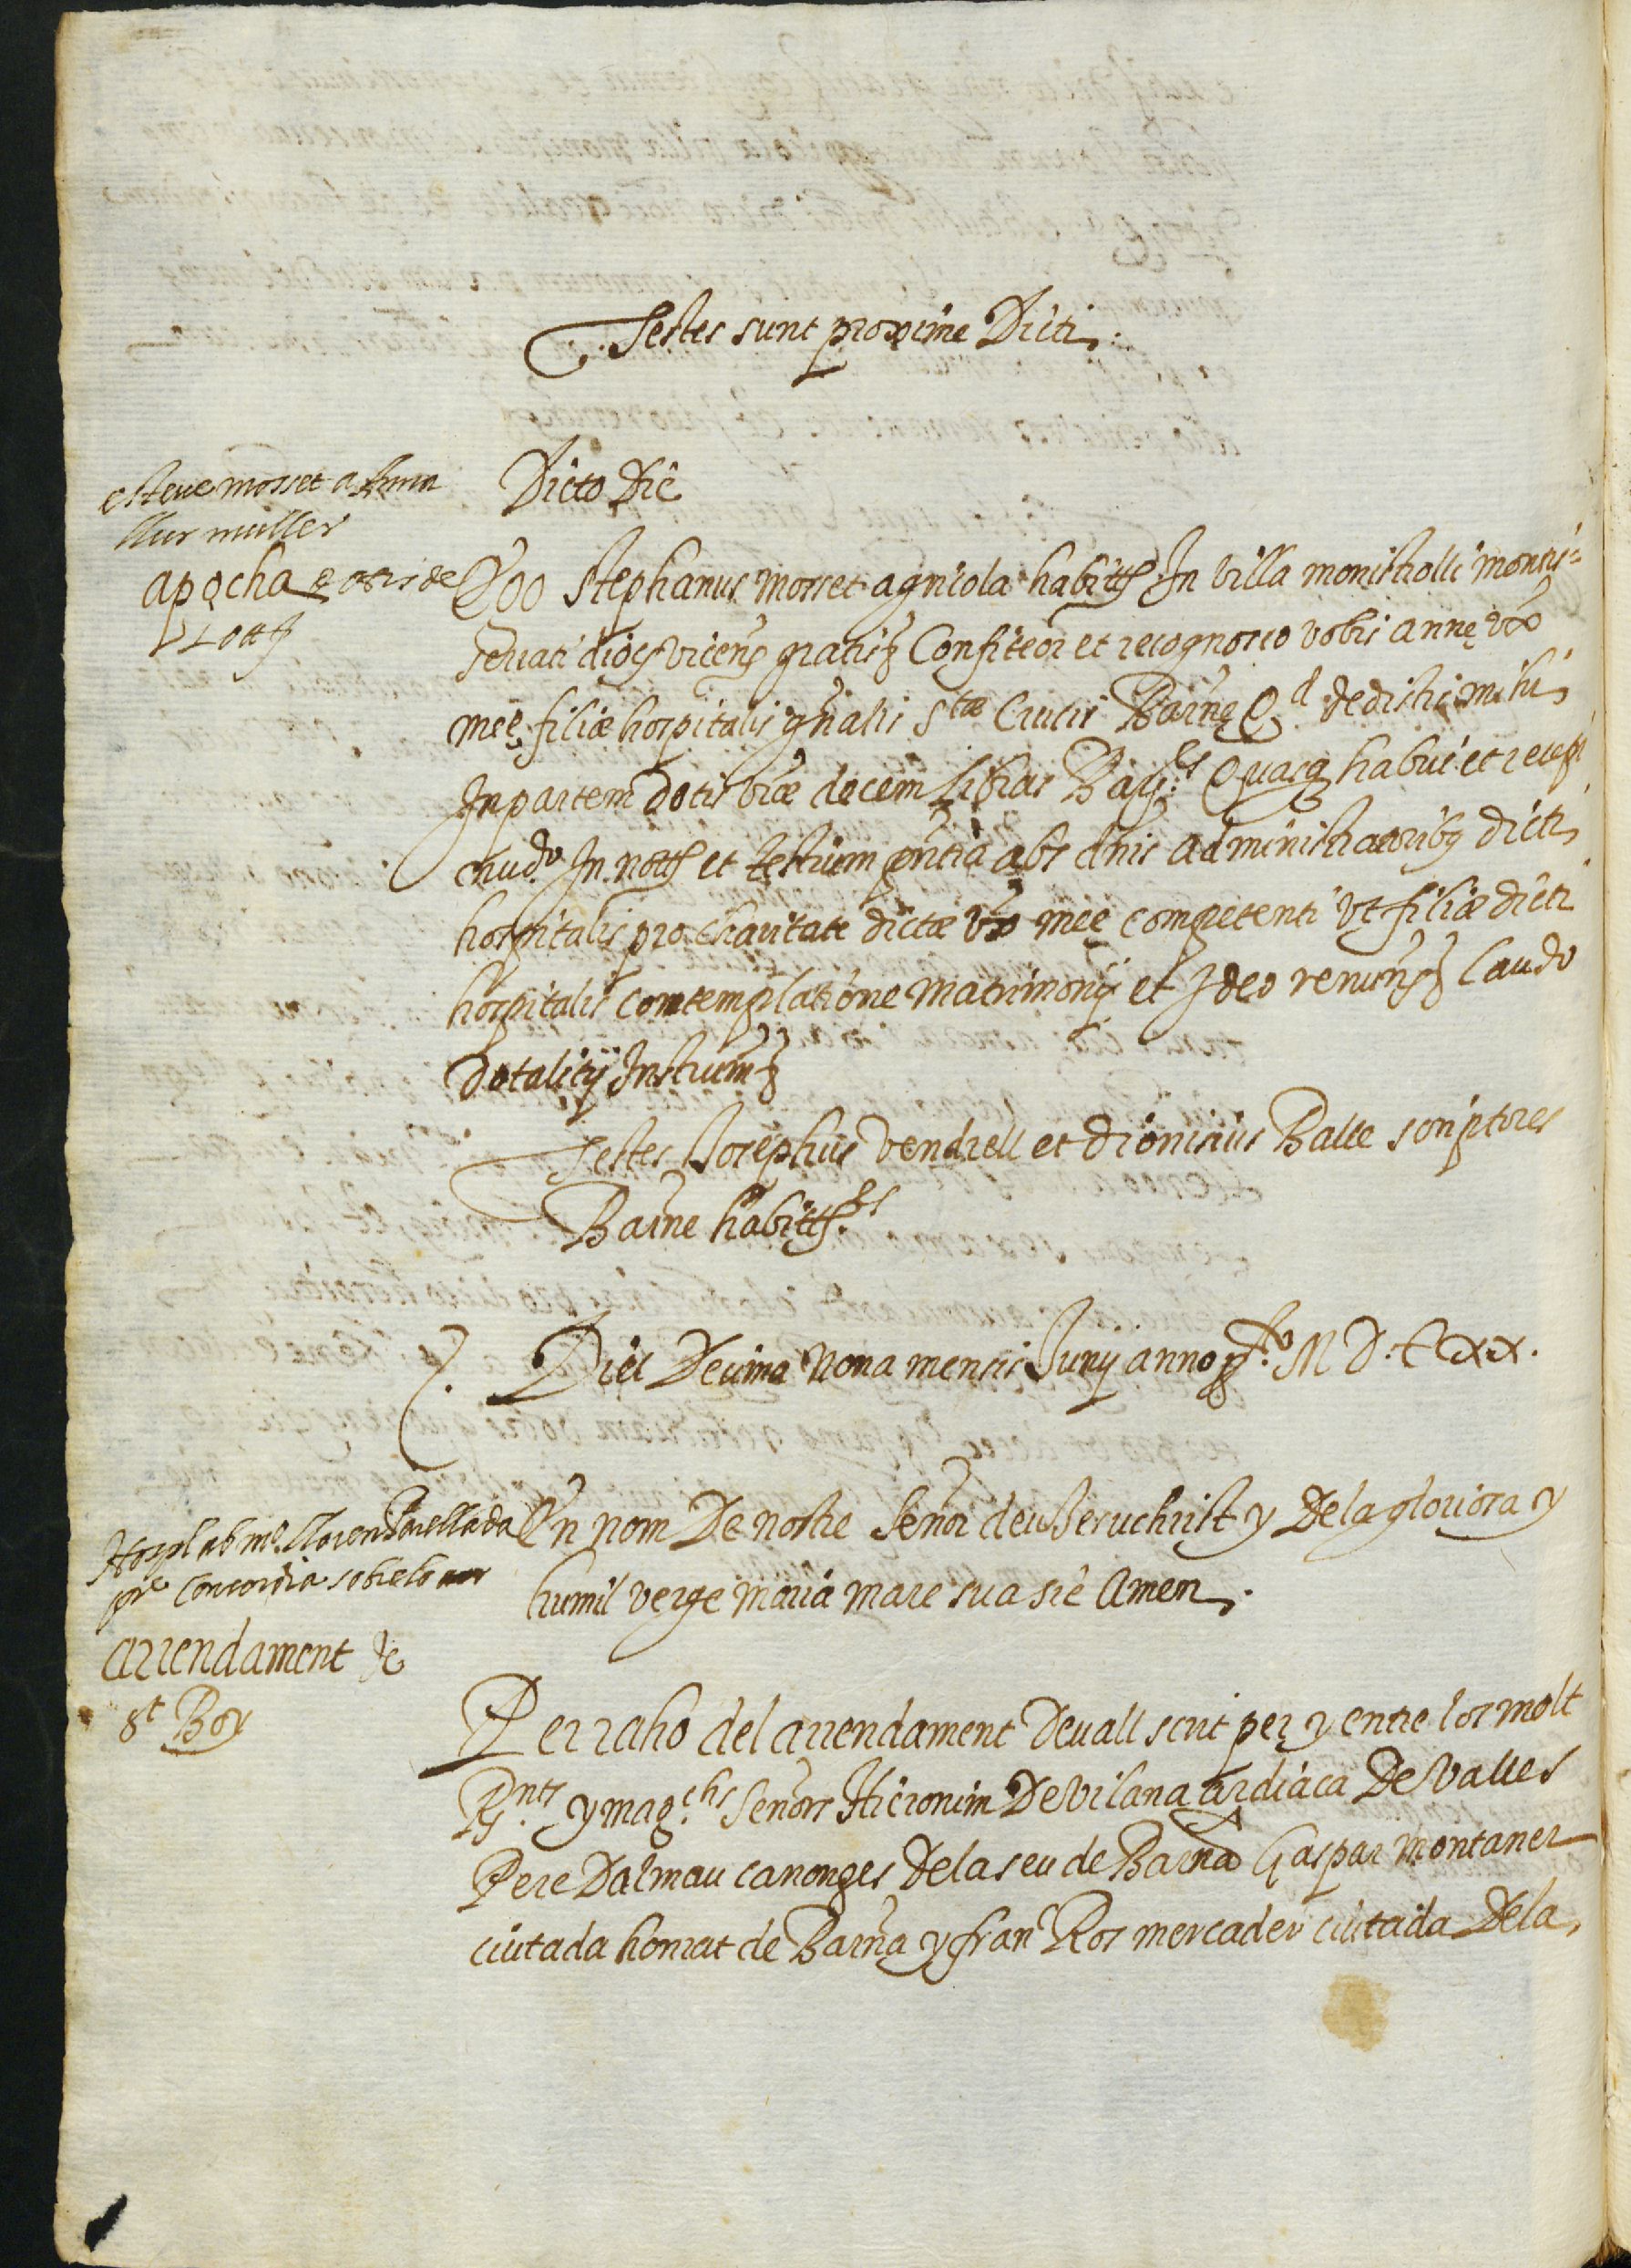 Testes sunt proxime Dicti.
esteve mosset a Anna
sur muller
apocha dotis de
Dicto Die
Ego Stephanus Mosset agricola habitts In villa monistrolli montis=
serrati diocs vicens gratis Confiteor et recognosco vobis annę vxo
meę filiæ hospitalis gnalis Stæ Crucis Barnę Qd dedistis mihi
In partem Dotis vræ decem libras Barss Quasq habui et recepi
nudo In notts et testium pntia abs dnis administratoribq dicti
hospitalis pro charitate dictæ vxo meę competenti vt filiæ dicti
hospitalis comtemplatione matrimonij et Ideo renuns Laudo
dotalitij Instrum
Testes Josephus Vendrell et dionisius Balle scriptores
Barne habitts
Die Decima Nona mensis Junij anno pto M D.C xx.
Hospl ab mo. lloren Parellada
per Concordia sobre lo
arrendament de
St Boy
En nom De nostre Senor deu Jesuchrist y De la gloriosa y
humil verge maria mare sua sie Amen.
Per raho del arrendament Devall scrit per y entre los molt
Rnts y magchs Senors Hieronim De Vilana ardiaca De Valles
Pere Dalmau canonges De la seu de Barna Gaspar Montaner
ciutada honrat de Barna y franc Ros mercader ciutada De la